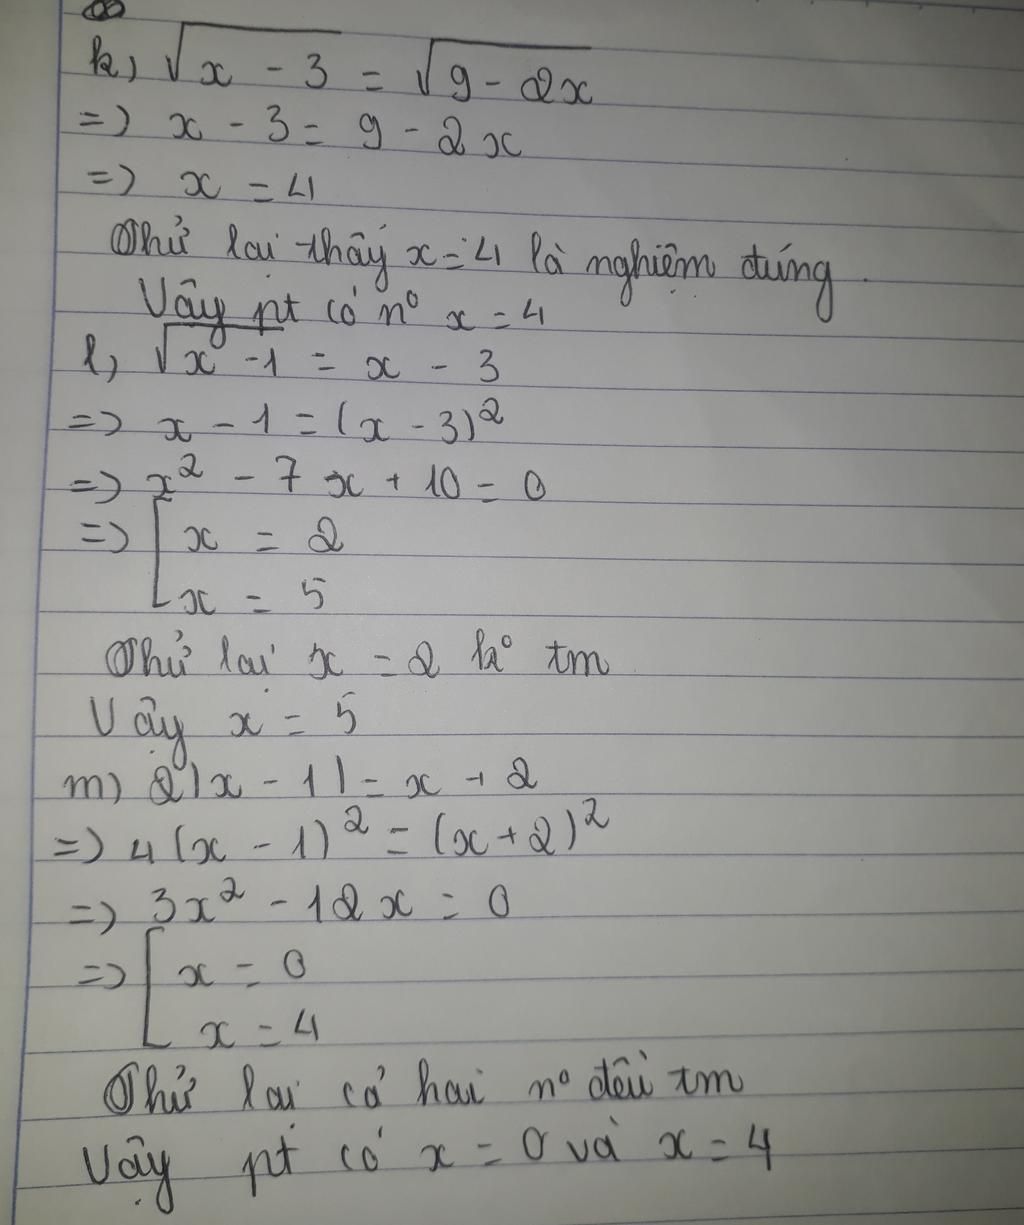 k, √x - 3 = √9 - 2x
=> x - 3 = 9 - 2x
=> x = 4
Thử lại thấy x = 4 là nghiệm đúng.
Vậy pt có nº x = 4
l, √x - 1 = x - 3
=> x - 1 = (x - 3)²
=> x² - 7x + 10 = 0
=> [ x = 2
x = 5
Thử lại x = 2 kº tm
Vậy x = 5
m) 2|x - 1| = x + 2
=> 4(x - 1)² = (x + 2)²
=> 3x² - 12x = 0
=> [ x = 0
x = 4
Thử lại cả hai nº đều tm
Vậy pt có x = 0 và x = 4